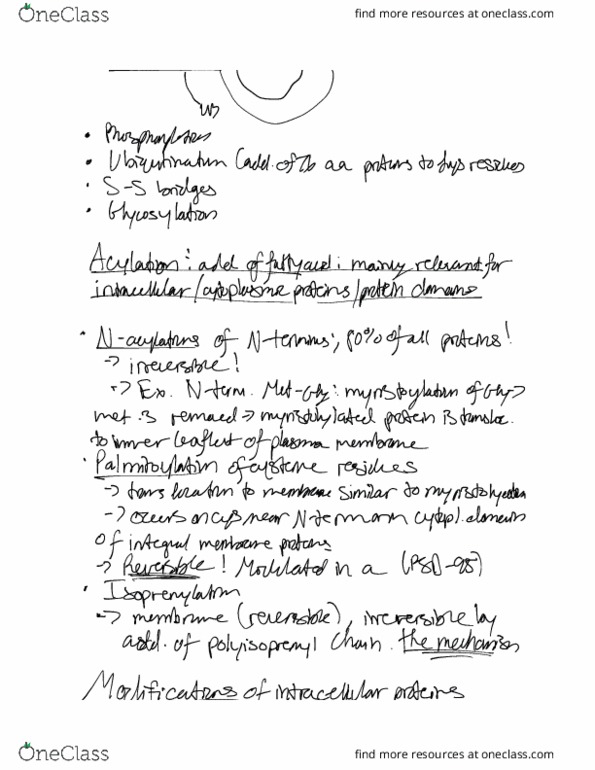 OneClass
find more resources at oneclass.com
• Phosphorylation
• Ubiquitination (add. of 76 aa proteins to Lys residues
• S-S bridges
• Glycosylation
Acylation: add of fatty acid: mainly relevant for
intracellular/cytoplasmic proteins/protein domains
• N-acylations of N-terminus; 80% of all proteins!
-> irreversible!
-> Ex. N-term. Met-Gly: myristoylation of Gly ->
met is removed -> myristoylated protein is transloc.
to inner leaflet of plasma membrane
• Palmitoylation of cysteine residues
-> translocation to membrane similar to myristoylation
-> occurs on cys near N-term or in cytopl. domains
of integral membrane proteins
-> Reversible! Modulated in a (PSD-95)
• Isoprenylation
-> membrane (reversible), irreversible by
add. of polyisoprenyl chain. the mechanism
Modifications of intracellular proteins
OneClass
find more resources at oneclass.com